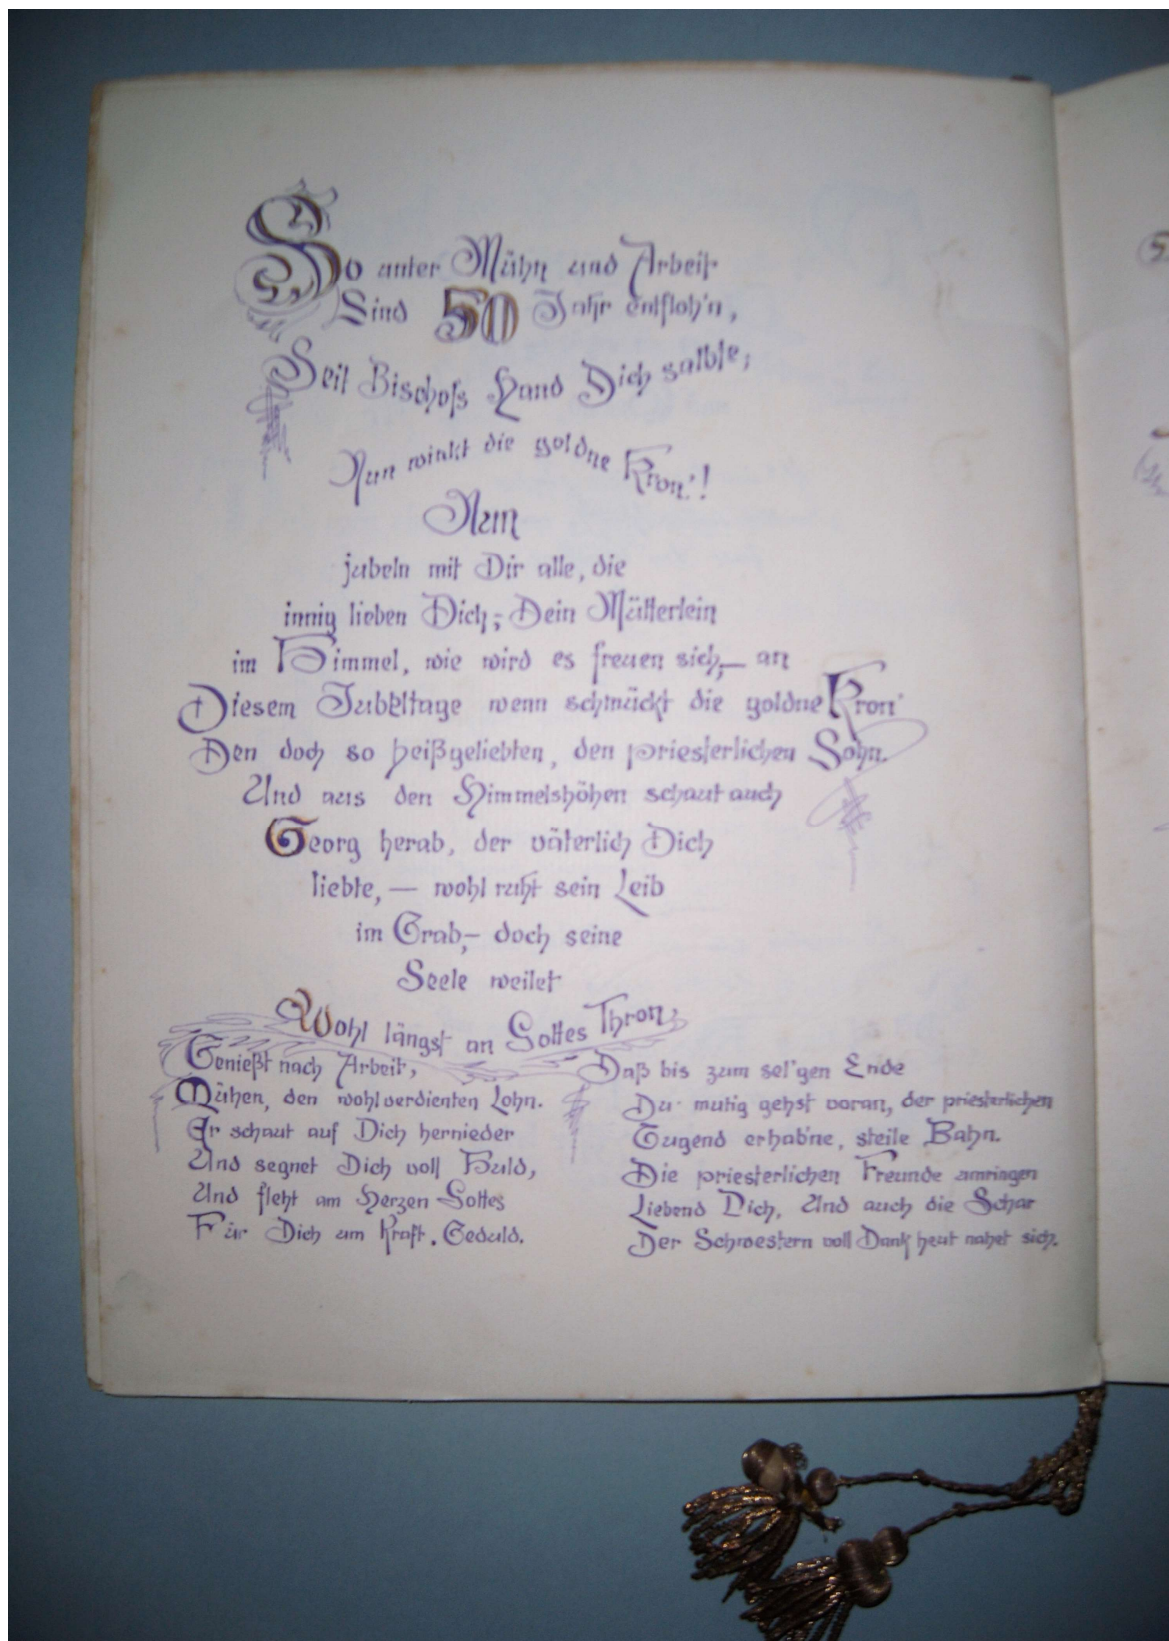 So unter Mühn und Arbeit
Sind 50 Jahr entfloh'n,
Seit Bischofs Hand Dich salbte;
Nun winkt die goldne Kron'!
Nun
jubeln mit Dir alle, die
innig lieben Dich,- Dein Mütterlein
im Himmel, wie wird es freuen sich,— an
Diesem Jubeltage wenn schmückt die goldne Kron'
Den doch so heißgeliebten, den priesterlichen Sohn.
Und aus den Himmelshöhen schaut auch
Georg herab, der väterlich Dich
liebte, — wohl ruht sein Leib
im Grab,— doch seine
Seele weilet
Wohl längst an Gottes Thron;
Genießt nach Arbeit,
Mühen, den wohlverdienten Lohn.
Er schaut auf Dich hernieder
Und segnet Dich voll Huld,
Und fleht am Herzen Gottes
Für Dich um Kraft, Geduld.
Daß bis zum sel'gen Ende
Du mutig gehst voran, der priesterlichen
Tugend erhab'ne, steile Bahn.
Die priesterlichen Freunde umringen
Liebend Dich, Und auch die Schar
Der Schwestern voll Dank heut nahet sich.